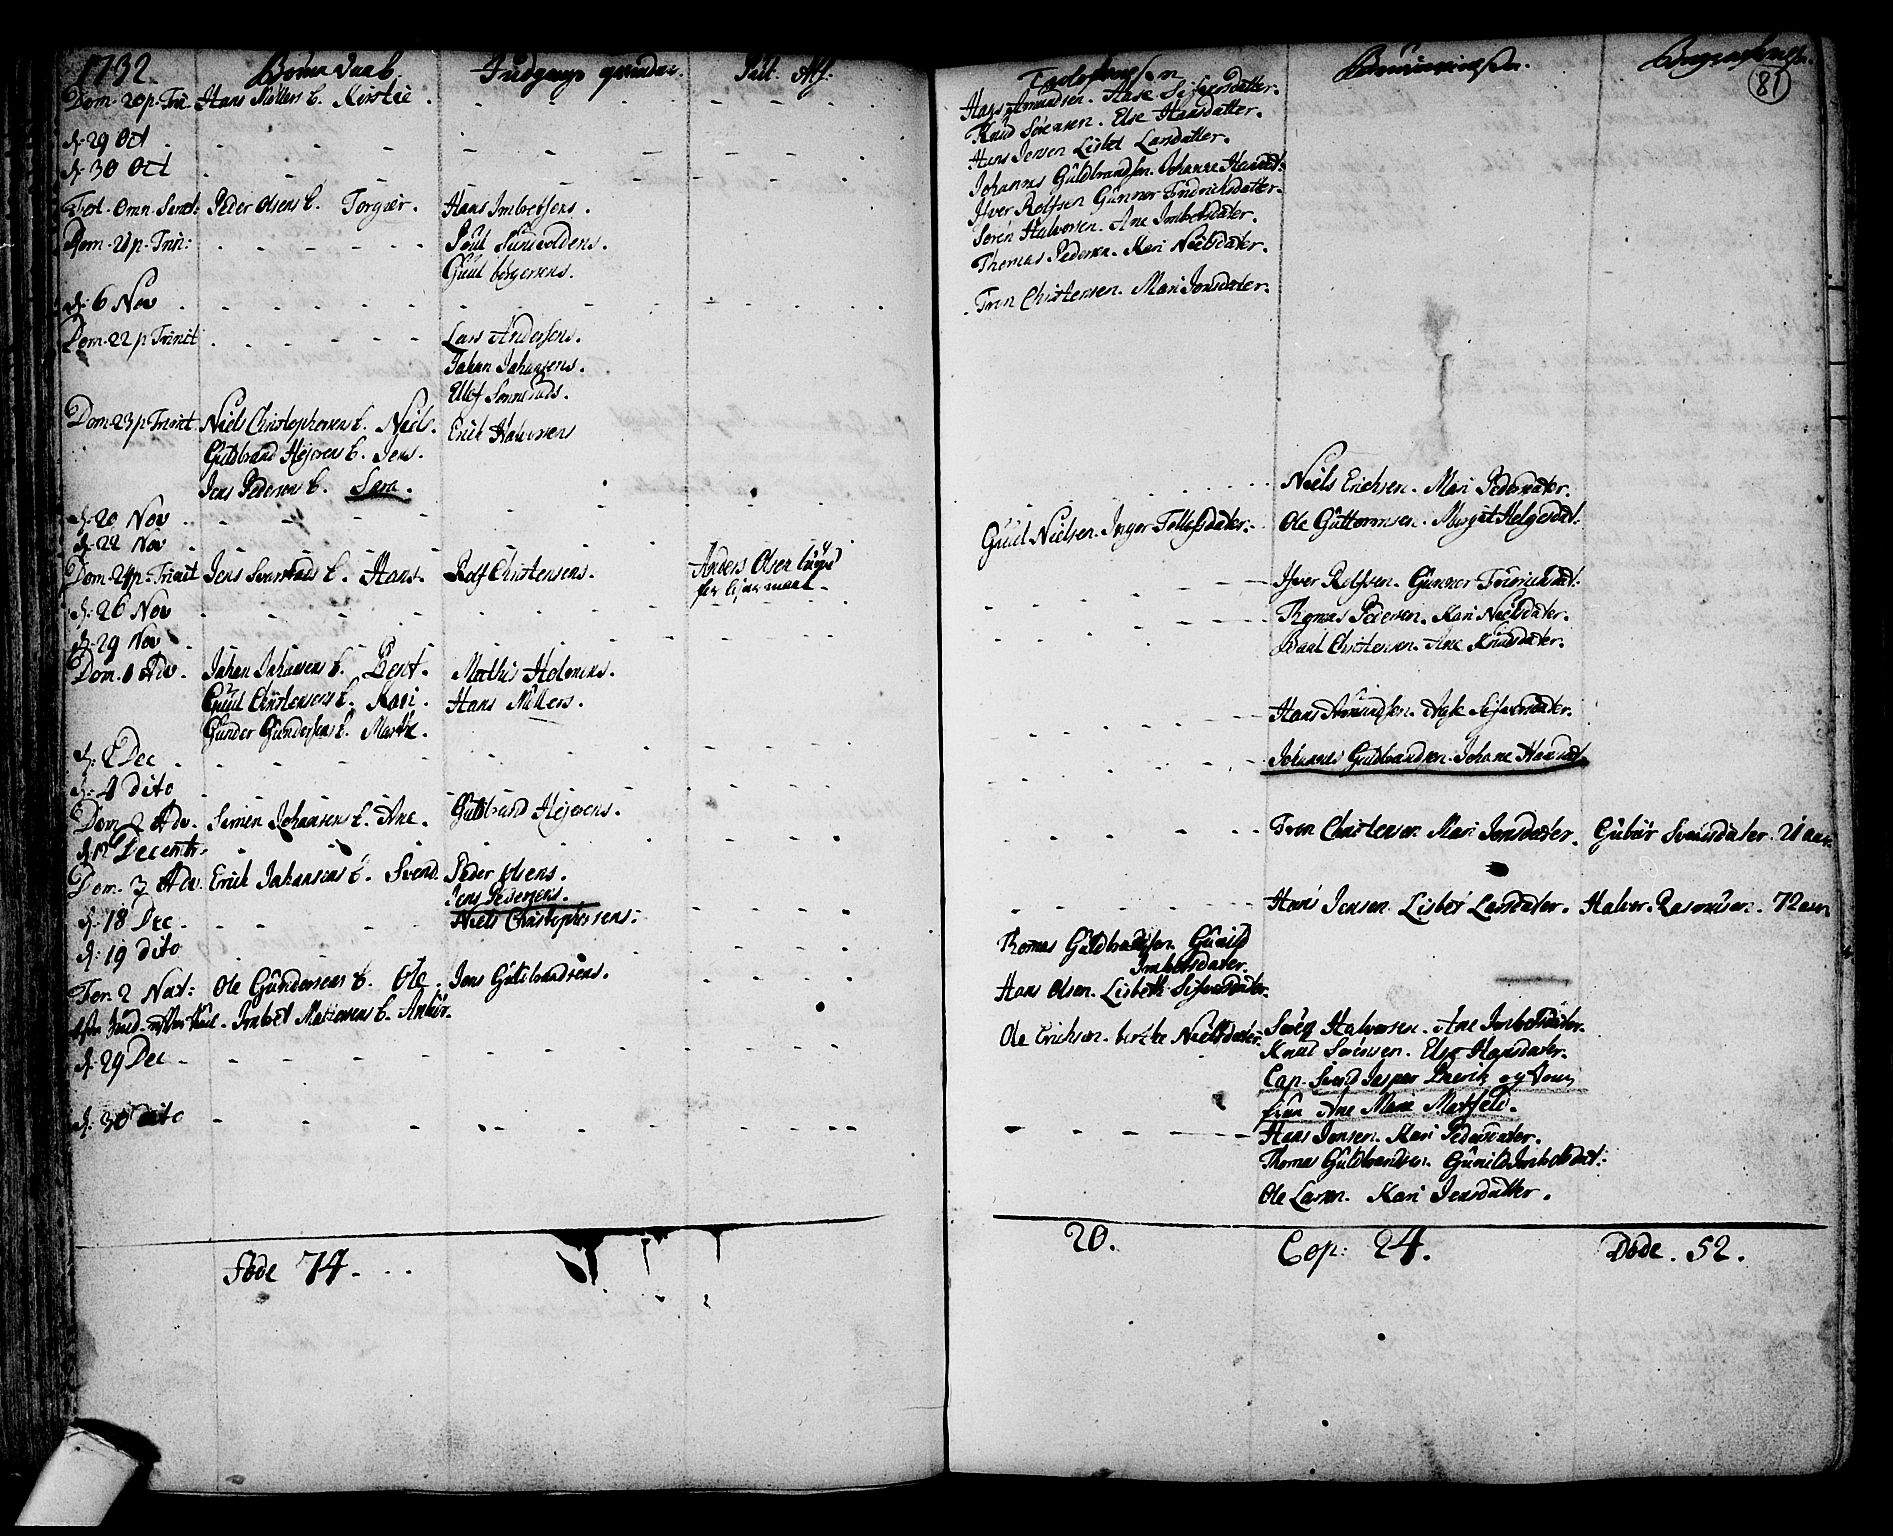 1732. Børne Daab. Indgangs quinder. Publ. Abs.
Dom. 20 p. Trin Hans Møllers b. Kirstie.
d. 29 Oct
d. 30 Oct
Fest. Omn. Sanct: Peder Olsens b. Torgier. Hans Imbertsens.
Dom. 21 p. Trin: Poul Sunvoldens.
Guul børgersens.
d. 6 Nov
Dom. 22 p Trinit Lars Andersens.
Johan Johansens.
Ellef Svensruds.
Dom. 23 p Trinit Niels Christophersens b. Niels. Erich Halvorsens
Guldbrand Hejerens b. Jens.
Jens Pedersens b. Sara.
d. 20 Nov
d. 22 Nov
Dom. 24 p. Trinit Jens Svensruds b. Hans. Rolf Christensens. Anders Olsen
for lejermaal
d. 26 Nov
d. 29 Nov
Dom. 1 Adv. Johan Johansens b. Bent. Mathis
Guul Christensens b. Kari. Hans Møllers.
Gunder Gundersens b. Marthe.
d. Dec
d. 4 dito
Dom 2 Adv. Simen Johansens b. Ane. Guldbrand Hejerens.
d. Decemb.
Dom. 3 Adv. Erich Johansens b. Svend. Peder Olsens.
Jens Pedersens.
d. 18 Dec Niels Christophersens.
d. 19 dito
Fer. 2 Nat: Ole Gundersens b. Ole. Jens Guldbrandsens.
Imbert b. Anbiør.
d. 29 Dec
d. 30 dito
føde 74.
81
Trolofvelsen
Hans Amundsen. Aase Sifversdatter.
Knud Sørensen. Else Hansdatter.
Hans Jensen Lisbet Larsdatter.
Johannes Guldbrandsen. Johanne Hansdat:
Ifver Rolfsen Gunnor Fridrichsdatter.
Søren Halvorsen. Ane Imbertsdater.
Thomas Pedersen. Kari Nielsdater.
Tron Christensen. Mari Jonsdater.
Niels Erichsen. Mari Pedersdater.
Guul Nielsen. Inger Tollefsdater. Ole Guttormsen. Margit Helgesdat:
Ifver Rolfsen. Gunnor Fridrichsdat:
Thomas Pedersen. Kari Nielsdater.
Paal Christensen. Ane Knudsdater.
Hans Amundsen. Aase Sifversdater.
Johannes Guldbrandsen. Johane Hansdat
Tron Christensen Mari Jonsdater. Gubiør Svendsdater. 21 aar.
Hans Jensen. Lisbet Larsdater. Halvor Rasmusen. 72 aar
Thomas Guldbrandsen Gunild
Imbertsdater.
Hans Olsen. Lisbeth Sifversdater.
Ole Erichsen. birthe Nielsdater. Søren Halvorsen. Ane Imbertsdater.
Knud Sørensen. Else Hansdater.
Cap. Svend Jasper og Jom
fru Ane Marie
Hans Jensen. Kari Pedersdater.
Thomas Guldbrandsen. Gunild Imbertsdat:
Ole Larsen. Kari Jensdatter.
20. Cop: 24. Døde. 52.